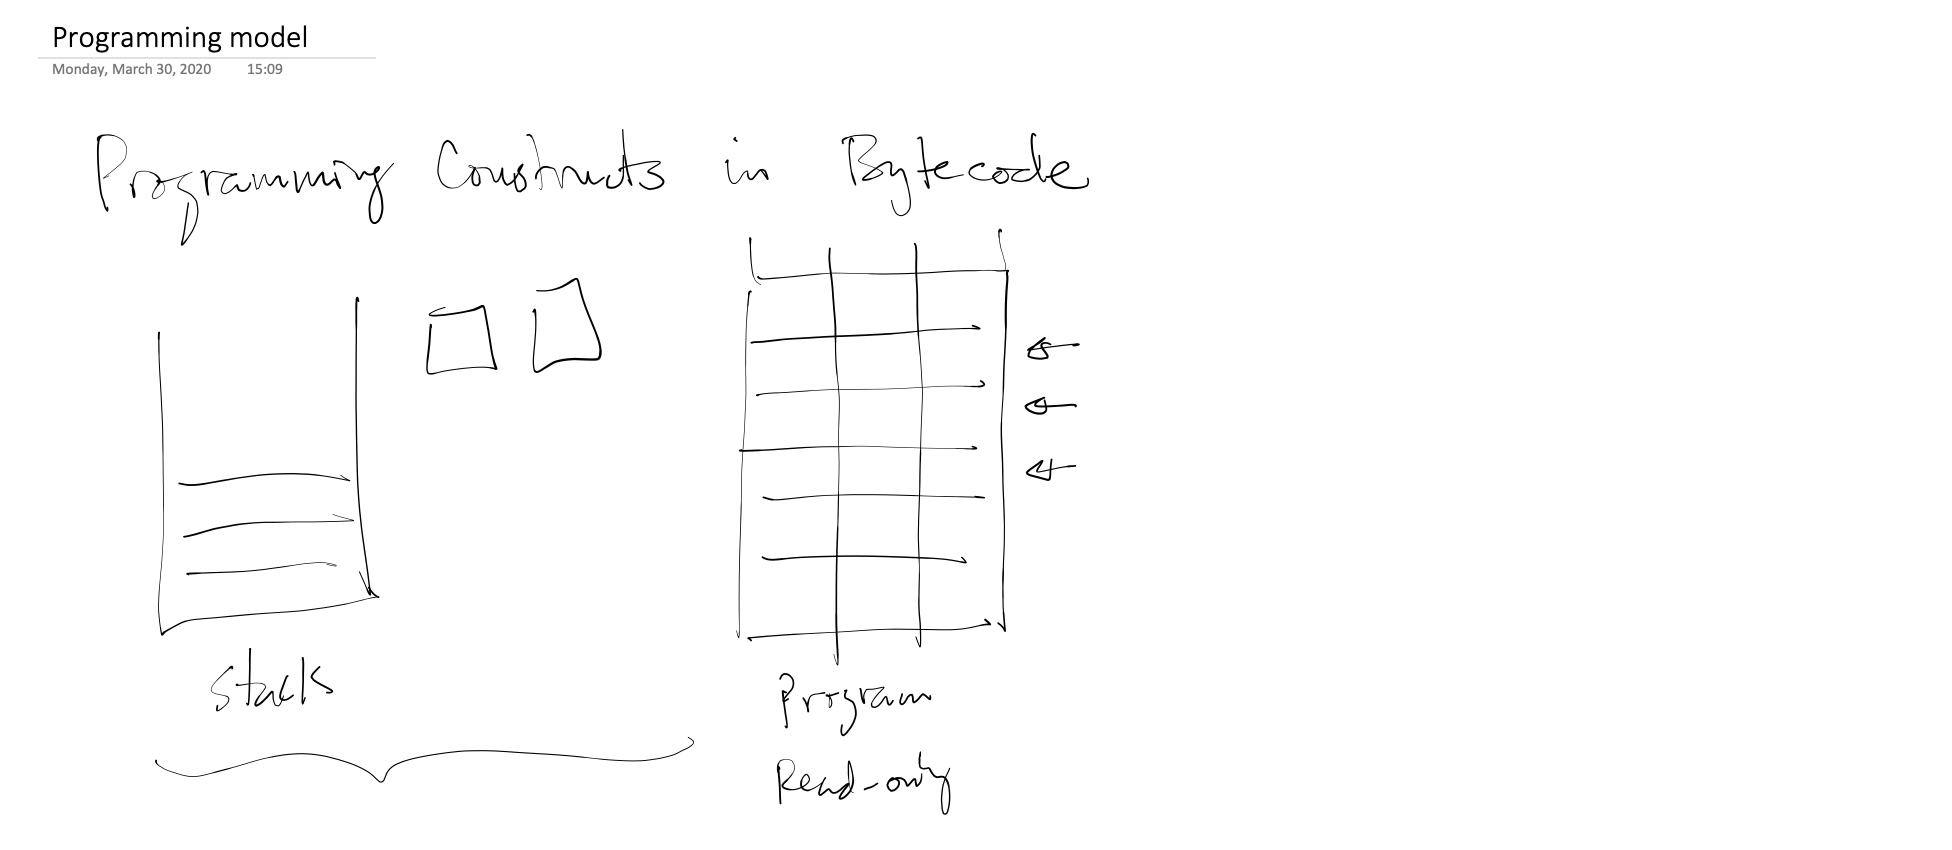 Programming model
Monday, March 30, 2020 15:09
Programming Constructs in Bytecode
Stack
Program
Read-only